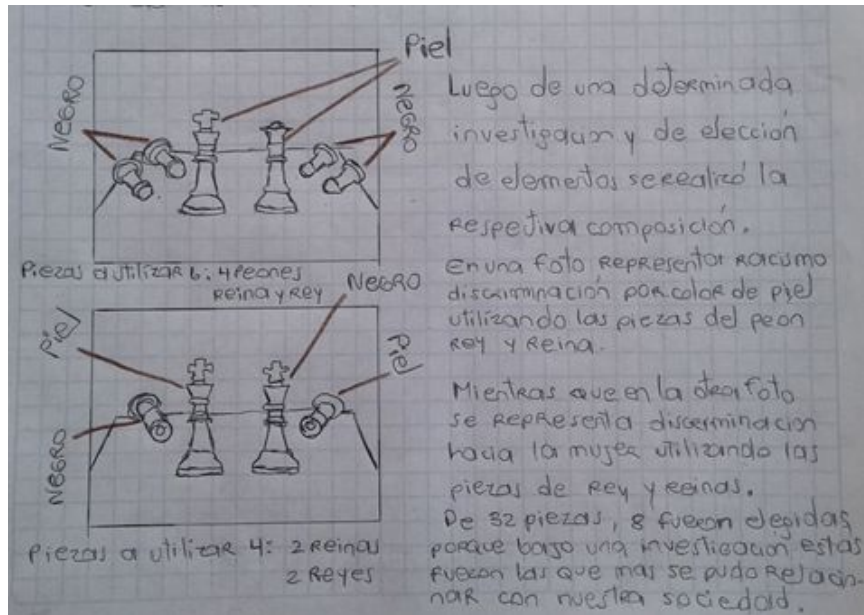 Piel
NEGRO
NEGRO
Piezas a utilizar 6: 4 Peones
Reina y Rey
NEGRO
Piel
Piel
NEGRO
Piezas a utilizar 4: 2 Reinas
2 Reyes
Luego de una determinada
investigacion y de elección
de elementos se realizó la
respetiva composición.
En una foto representar racismo
discriminación por color de piel
utilizando las piezas del peon
Rey y Reina.
Mientras que en la otra foto
se representa discriminacion
hacia la mujer utilizando las
piezas de Rey y reinas.
De 32 piezas, 8 fueron elegidas
porque bajo una investigacion estas
fueron las que mas se pudo relacio-
nar con nuestra sociedad.